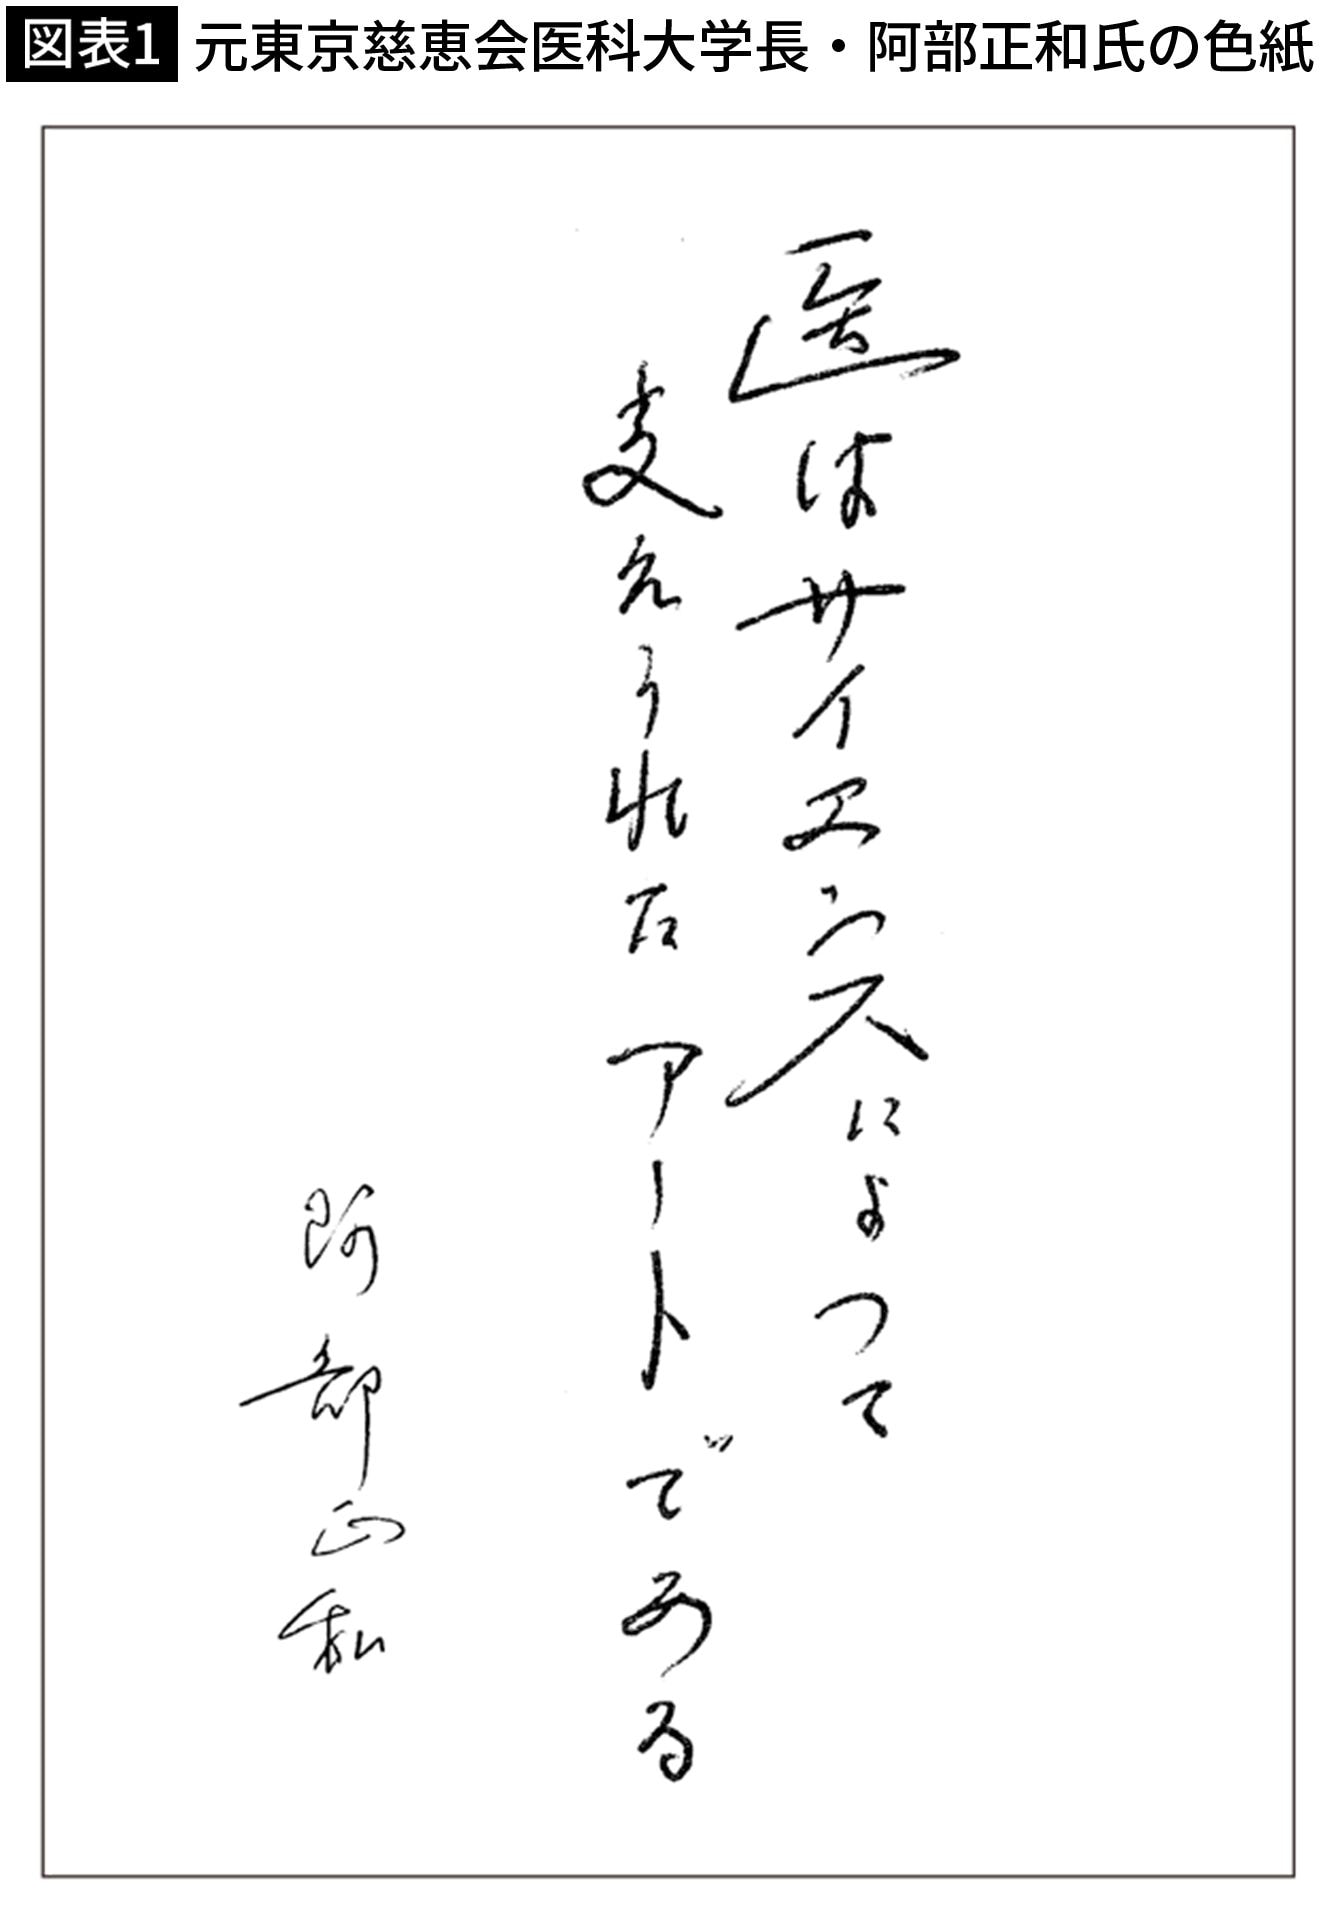 図表1 元東京慈恵会医科大学長・阿部正和氏の色紙
医はサイエンスによって
支えられたアートである
阿部正和